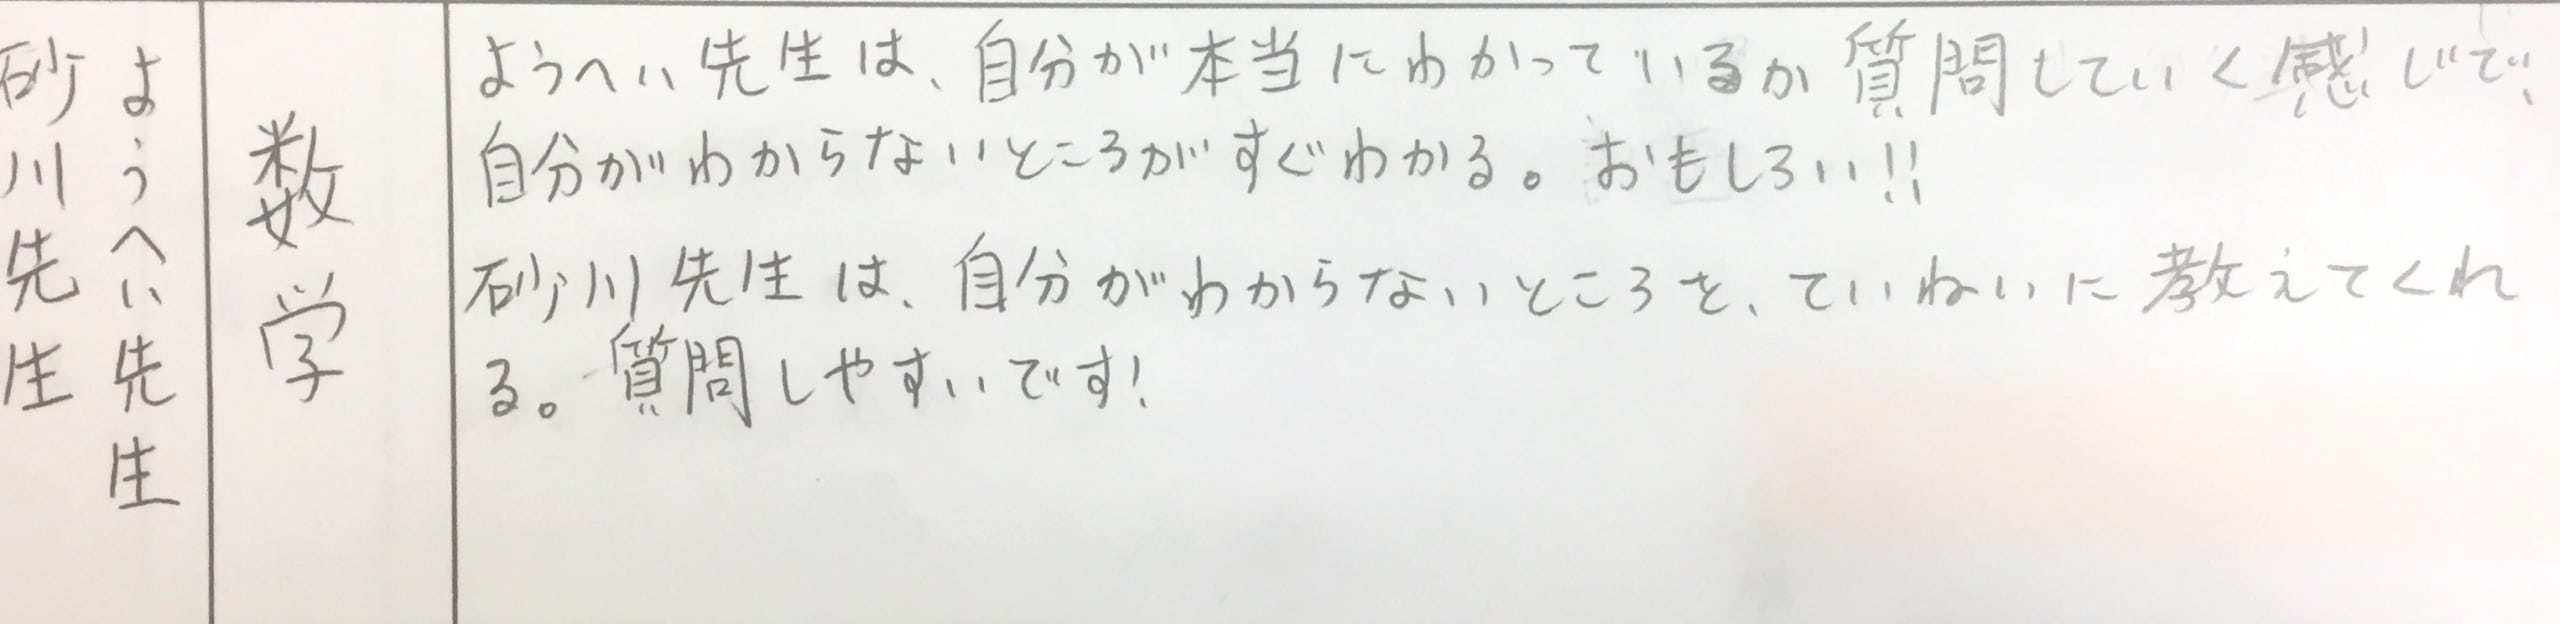 ようへい先生
砂川先生
数学
ようへい先生は、自分が本当にわかっているか質問していく感じで、
自分がわからないところがすぐわかる。おもしろい!!
砂川先生は、自分がわからないところを、ていねいに教えてくれ
る。質問しやすいです!